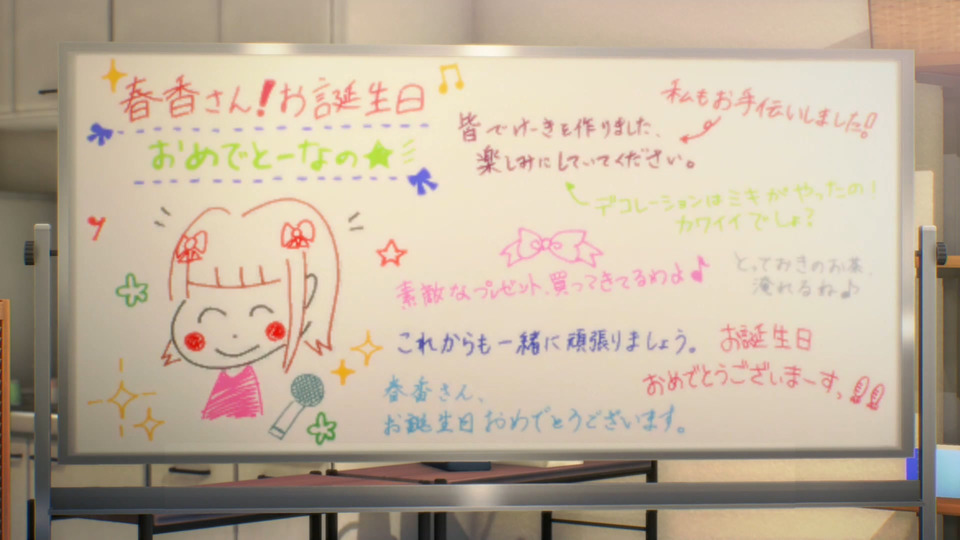 春香さん!お誕生日
おめでとーなの★
皆でけーきを作りました、
楽しみにしていてください。
私もお手伝いしました!!
デコレーションはミキがやったの!
カワイイでしょ?
素敵なプレゼント、買ってきてるわよ♪
とっておきのお茶、
淹れるね♪
これからも一緒に頑張りましょう。
お誕生日
おめでとうございまーすっ!!
春香さん、
お誕生日おめでとうございます。